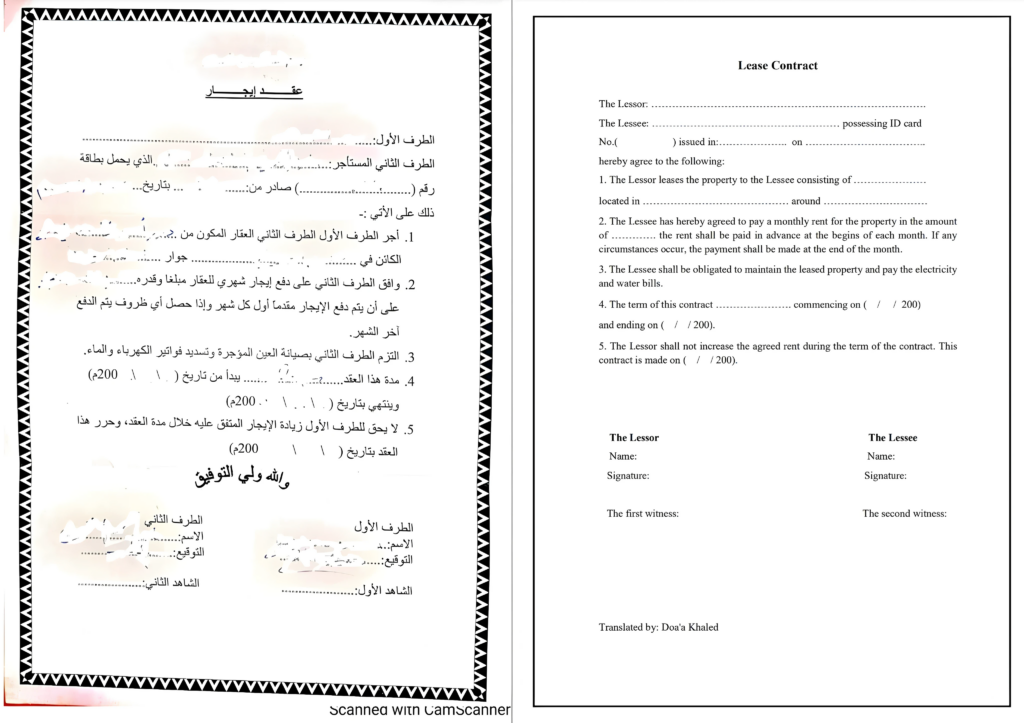 عقد إيجار
الطرف الأول:
الطرف الثاني المستأجر: الذي يحمل بطاقة
رقم ( ) صادر من: بتاريخ
ذلك على الأتي :-
1. أجر الطرف الأول الطرف الثاني العقار المكون من
الكائن في جوار
2. وافق الطرف الثاني على دفع إيجار شهري للعقار مبلغا وقدره
على أن يتم دفع الإيجار مقدماً أول كل شهر وإذا حصل أي ظروف يتم الدفع
آخر الشهر.
3. التزم الطرف الثاني بصيانة العين المؤجرة وتسديد فواتير الكهرباء والماء.
4. مدة هذا العقد يبدأ من تاريخ ( \ \ 200م)
وينتهي بتاريخ ( \ \ 200م)
5. لا يحق للطرف الأول زيادة الإيجار المتفق عليه خلال مدة العقد، وحرر هذا
العقد بتاريخ ( \ \ 200م)
والله ولي التوفيق
الطرف الأول
الاسم:
التوقيع:
الشاهد الأول:
الطرف الثاني
الاسم:
التوقيع:
الشاهد الثاني:
Scanned with CamScanner
Lease Contract
The Lessor: ..........
The Lessee: .......... possessing ID card
No.( ) issued in:.......... on ..........
hereby agree to the following:
1. The Lessor leases the property to the Lessee consisting of ..........
located in .......... around ..........
2. The Lessee has hereby agreed to pay a monthly rent for the property in the amount
of .......... the rent shall be paid in advance at the begins of each month. If any
circumstances occur, the payment shall be made at the end of the month.
3. The Lessee shall be obligated to maintain the leased property and pay the electricity
and water bills.
4. The term of this contract .......... commencing on ( / / 200)
and ending on ( / / 200).
5. The Lessor shall not increase the agreed rent during the term of the contract. This
contract is made on ( / / 200).
The Lessor
Name:
Signature:
The first witness:
The Lessee
Name:
Signature:
The second witness:
Translated by: Doa'a Khaled